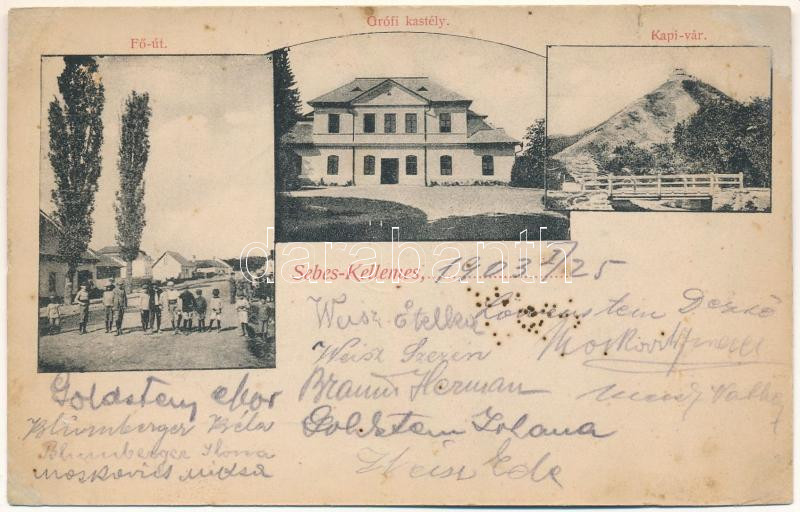 Fő-út.
Grófi kastély.
Kapi-vár.
darabanth
Sebes-Kellemes, 1903 I/25
Weisz Etelka
Löwenstein Dezső
Weisz Szerén
Moskovits
Braun Herman
Goldstein Jolana
Weisz Ede
Goldstein Mor
Blumberger Béla
Blumberger Ilona
Moskovics Miksa